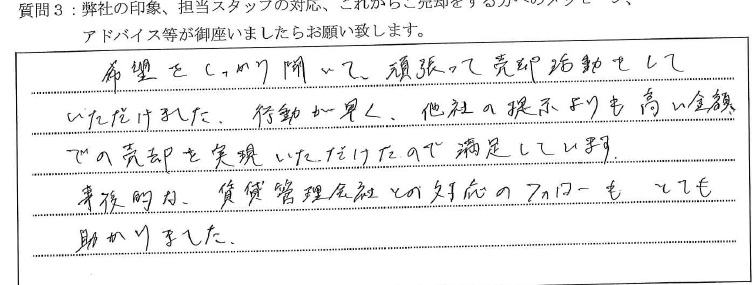 質問3：弊社の印象、担当スタッフの対応、これからご売却をする方へのメッセージ、
アドバイス等が御座いましたらお願い致します。
希望をしっかり聞いて、頑張って売却活動をして
いただけました。行動が早く、他社の提示よりも高い金額
での売却を実現いただけたので満足しています。
事後的な、賃貸管理会社との対応のフォローもとても
助かりました。